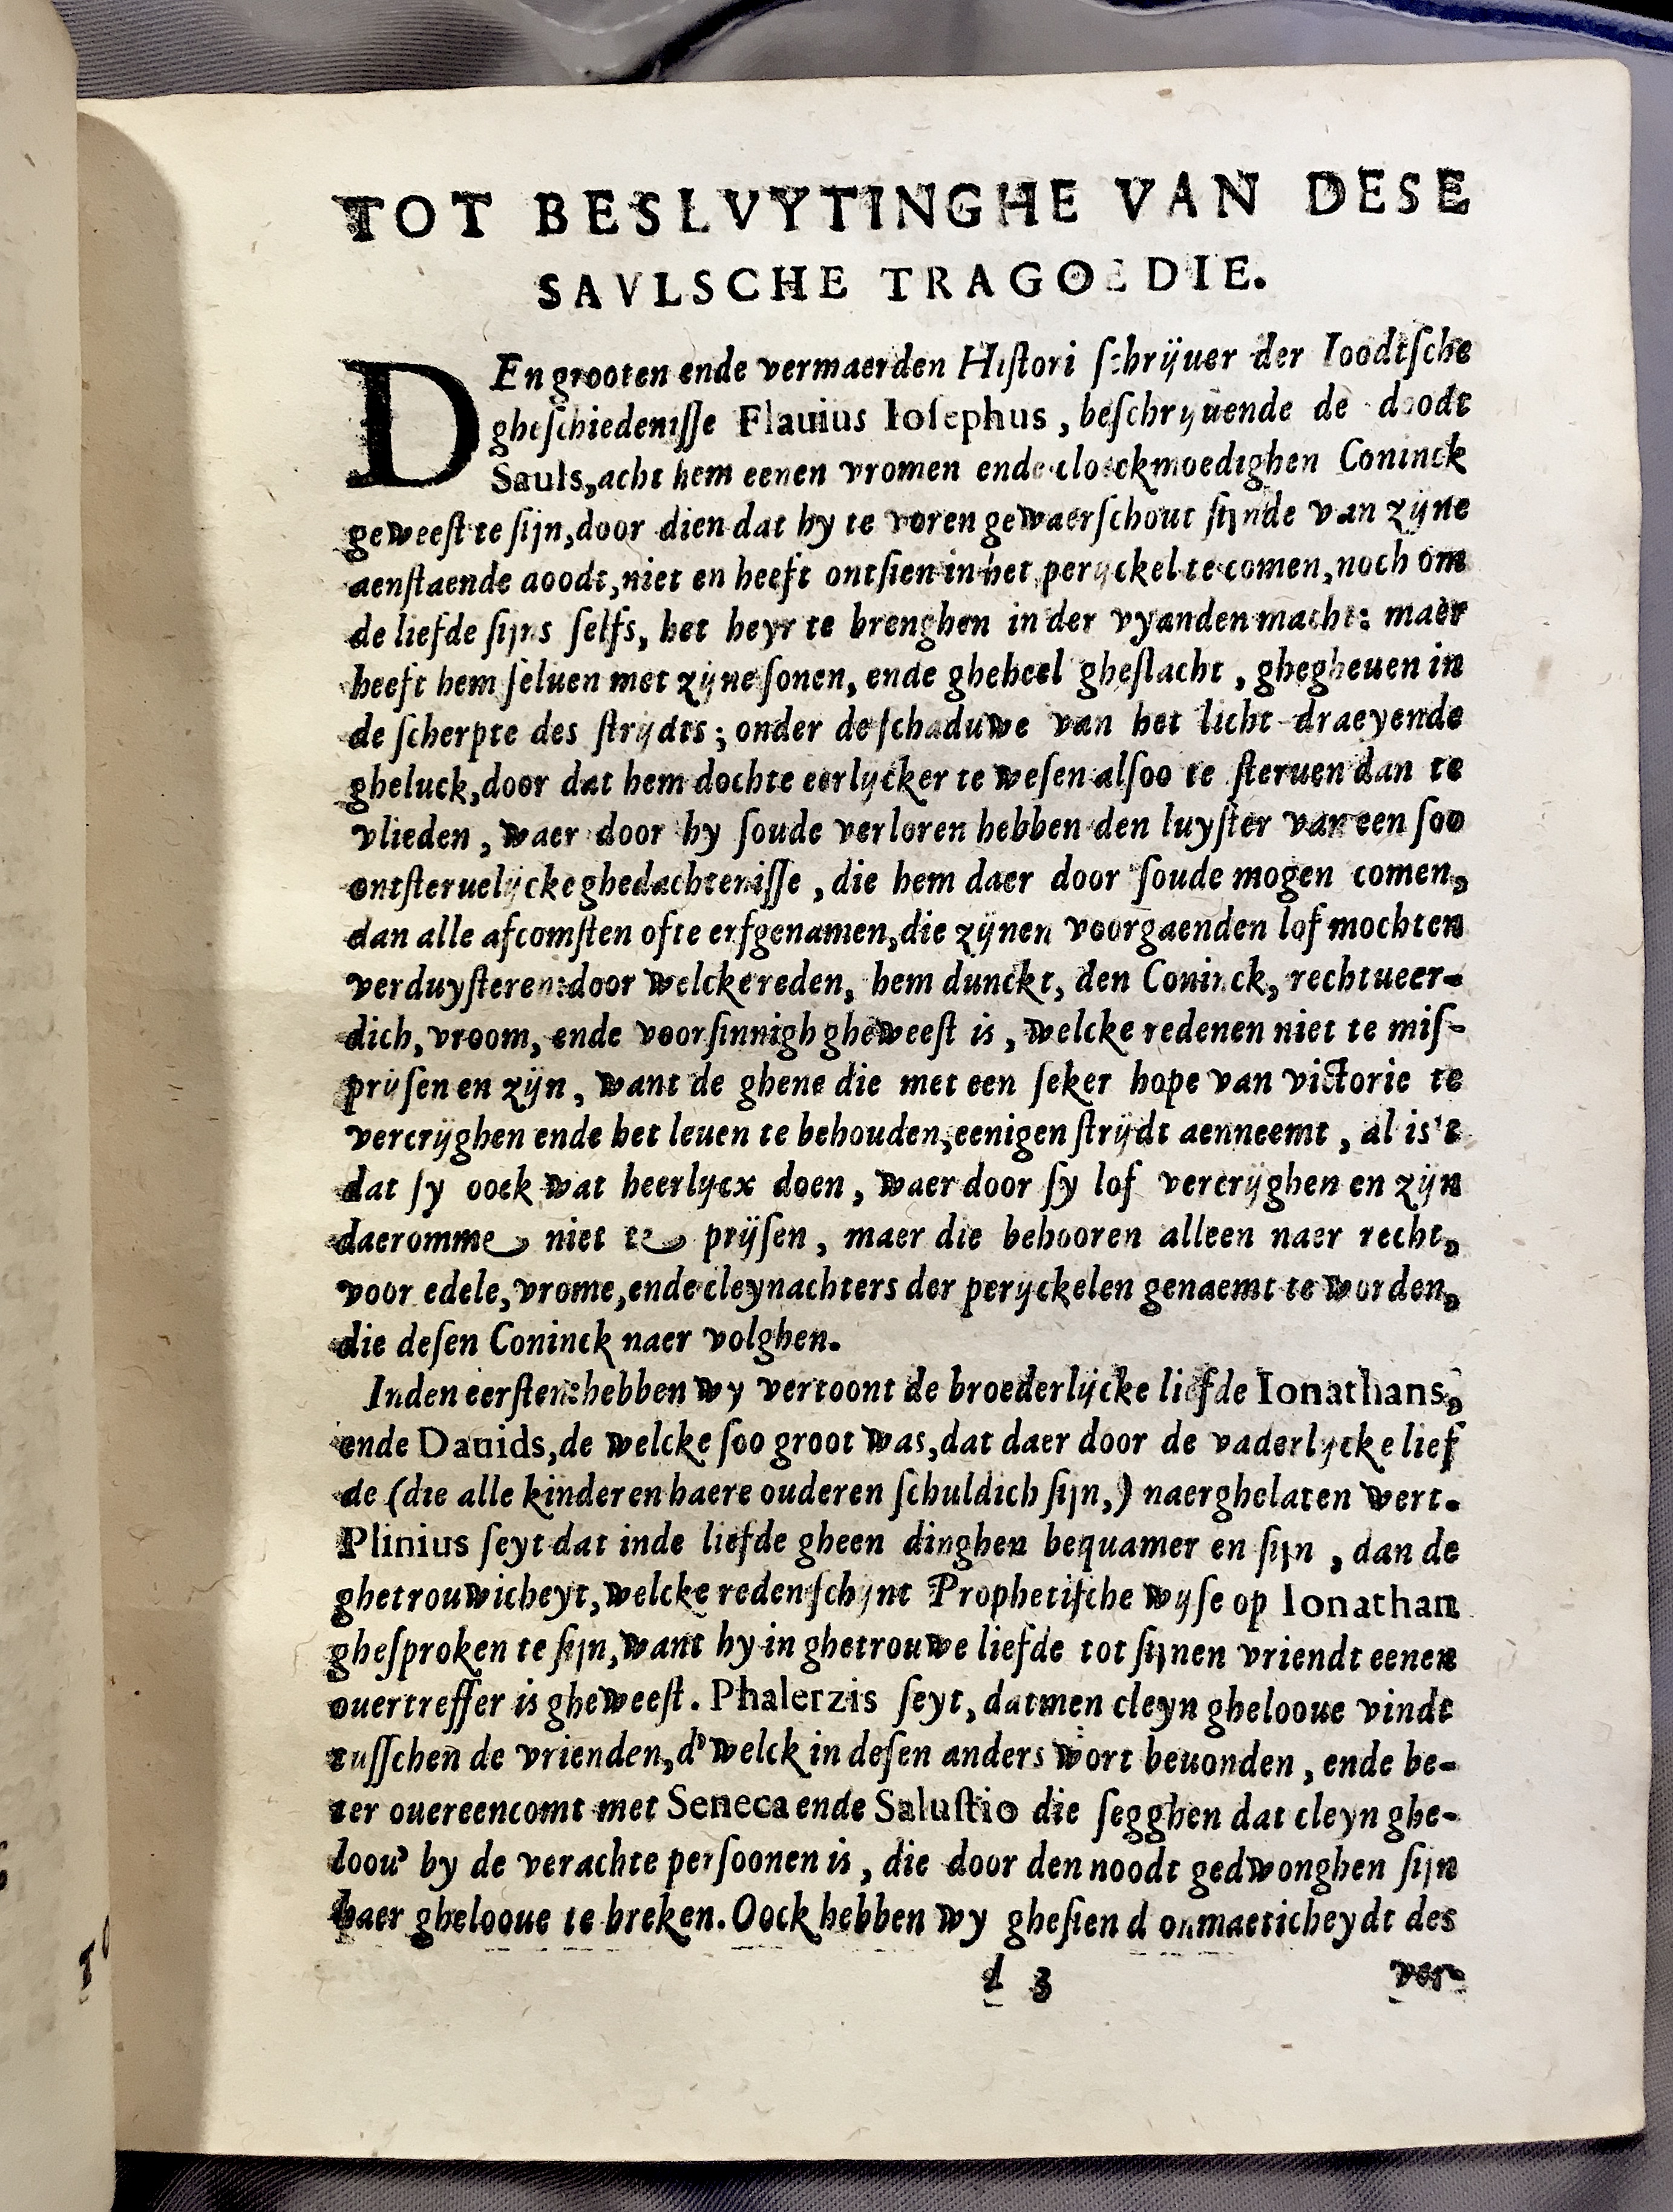 TOT BESLVYTINGHE VAN DESE
SAVLSCHE TRAGOEDIE.
DEn grooten ende vermaerden Hiſtori ſchrijuer der Ioodtſche
gheſchiedeniſſe Flauius Ioſephus, beſchrijuende de doodt
Sauls, acht hem eenen vromen ende cloeckmoedighen Coninck
geweeſt te ſijn, door dien dat hy te voren gewaerſchout ſijnde van zijne
aenſtaende doodt, niet en heeft ontſien in het perijckel te comen, noch om
de liefde ſijns ſelfs, het heyr te brenghen in der vyanden macht: maer
heeft hem ſeluen met zijne ſonen, ende gheheel gheſlacht, ghegheuen in
de ſcherpte des ſtrijdts; onder de ſchaduwe van het licht-draeyende
gheluck, door dat hem dochte eerlijcker te weſen alſoo te ſteruen dan te
vlieden, waer door hy ſoude verloren hebben den luyſter van een ſoo
ontſteruelijcke ghedachteniſſe, die hem daer door ſoude mogen comen,
dan alle afcomſten ofte erfgenamen, die zijnen voorgaenden lof mochten
verduyſteren: door welcke reden, hem dunckt, den Coninck, rechtueer-
dich, vroom, ende voorſinnigh gheweeſt is, welcke redenen niet te miſ-
prijſen en zijn, want de ghene die met een ſeker hope van victorie te
vercrijghen ende het leuen te behouden, eenigen ſtrijdt aenneemt, al is't
dat ſy oock wat heerlijcx doen, waer door ſy lof vercrijghen en zijn
daeromme niet te prijſen, maer die behooren alleen naer recht,
voor edele, vrome, ende cleynachters der perijckelen genaemt te worden,
die deſen Coninck naer volghen.
Inden eerſten: hebben wy vertoont de broederlijcke liefde Ionathans,
ende Dauids, de welcke ſoo groot was, dat daer door de vaderlijcke lief
de (die alle kinderen haere ouderen ſchuldich ſijn,) naerghelaten wert.
Plinius ſeyt dat inde liefde gheen dinghen bequamer en ſijn, dan de
ghetrouwicheyt, welcke reden ſchijnt Prophetiſche wijſe op Ionathan
gheſproken te ſijn, want hy in ghetrouwe liefde tot ſijnen vriendt eenen
ouertreffer is gheweeſt. Phalerzis ſeyt, datmen cleyn ghelooue vindt
tuſſchen de vrienden, d'welck in deſen anders wort beuonden, ende be-
ter ouereencomt met Seneca ende Saluſtio die ſegghen dat cleyn ghe-
loou' by de verachte perſoonen is, die door den noodt gedwonghen ſijn
haer ghelooue te breken. Oock hebben wy gheſien d onmaeticheydt des
d 3 ver-